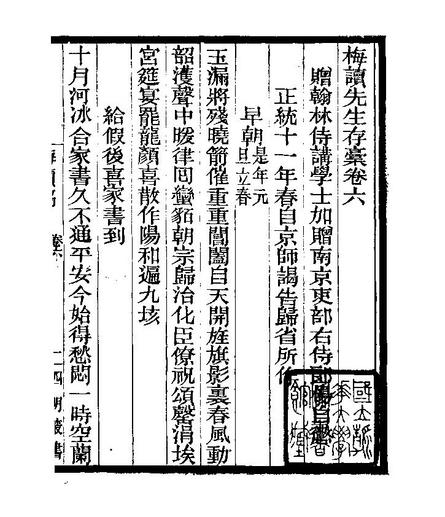 梅讀先生存稾卷六
贈翰林侍講學士加贈南京吏部右侍郎楊自懲
正統十一年春自京師謁告歸省所作
早朝是年元旦立春
玉漏將殘曉箭催重重閶闔自天開旌旗影裏春風動
韶濩聲中暖律囘蠻貊朝宗歸治化臣僚祝頌罄涓埃
宮筵宴罷龍顏喜散作陽和遍九垓
給假後喜家書到
十月河冰合家書久不通平安今始得愁悶一時空蘭
四明叢書